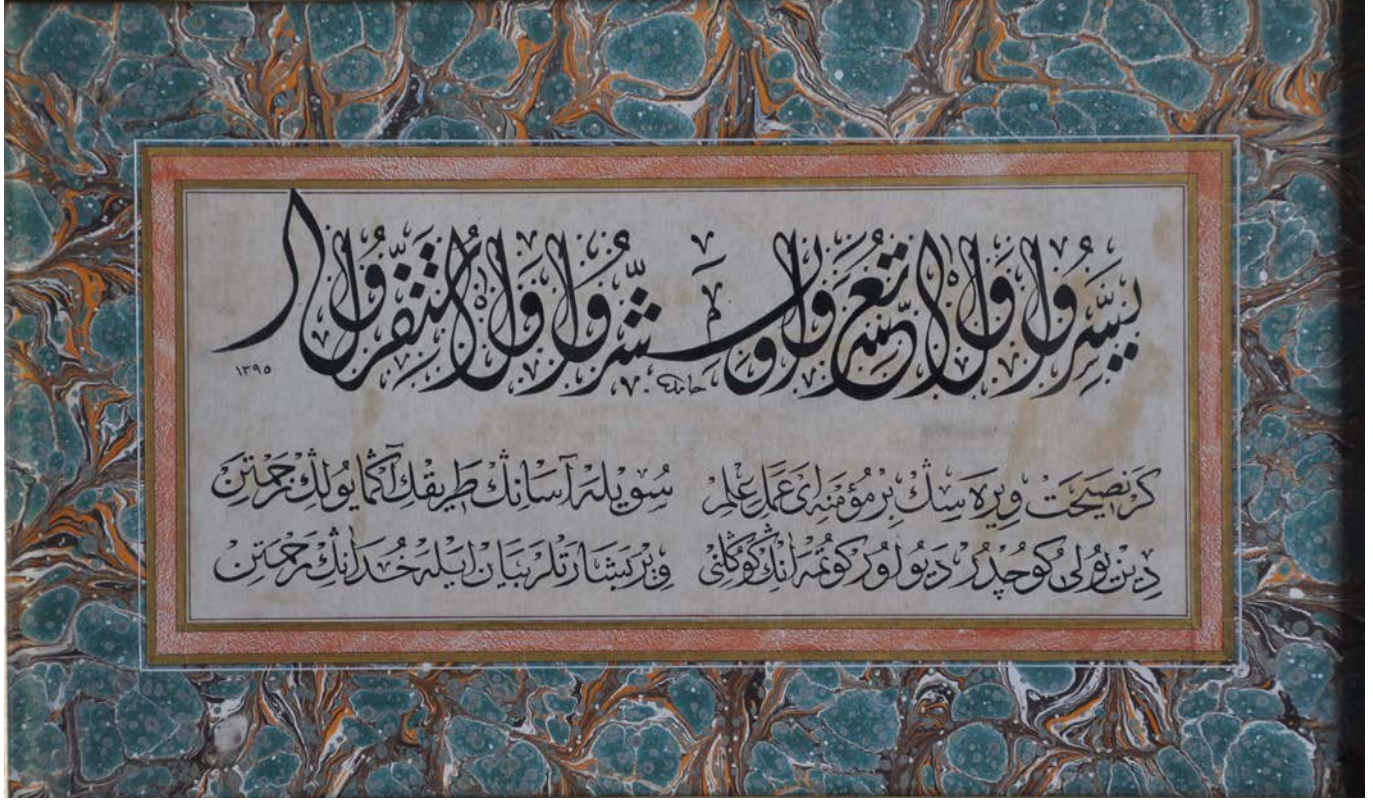 يَسِّرُوا وَلَا تُعَسِّرُوا وَبَشِّرُوا وَلَا تُنَفِّرُوا
حامد ١٣٩٥
كر نصيحت ويره سڭ بر مؤمنه اى عمل علم سويله آسانڭ طريقڭ آڭما يولڭ زحمتن
دين يولى كوجدر ديو اوركوتمه انڭ كوڭلنى وير بشارتلر بيان ايله خدانڭ رحمتن